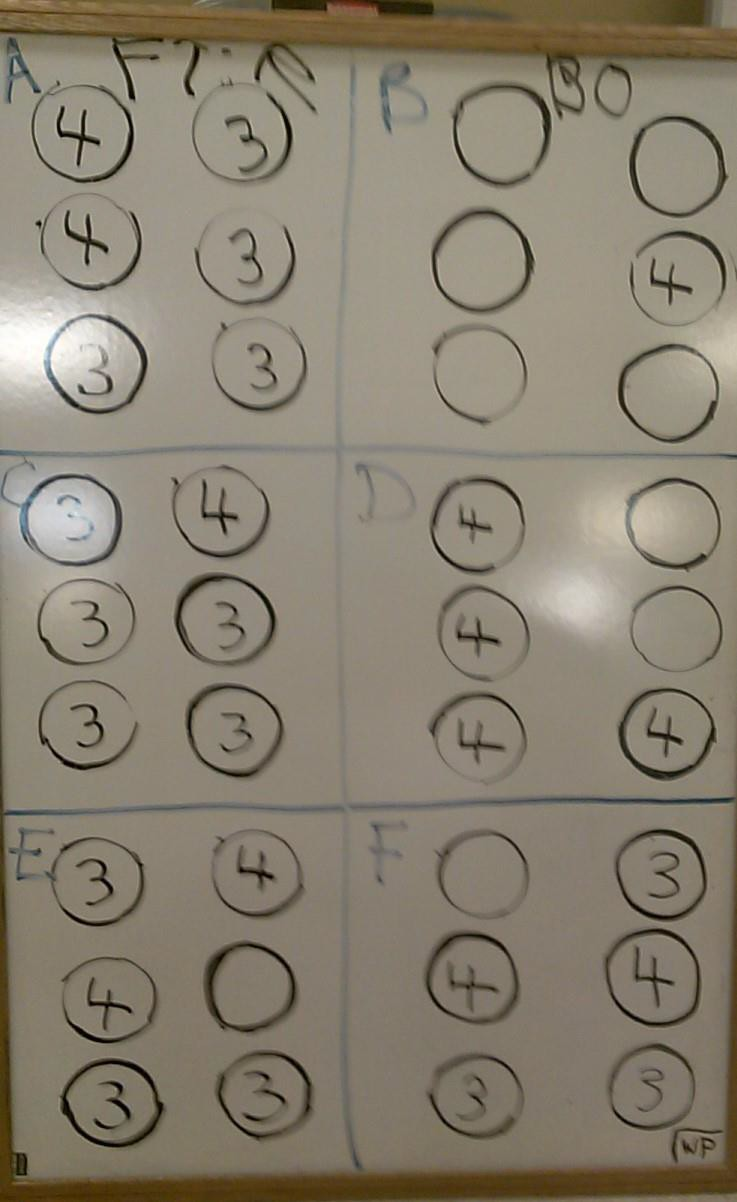 A
4 3
4 3
3 3
B BO
4
C
3 4
3 3
3 3
D
4
4
4 4
E
3 4
4
3 3
F
3
4 4
3 3
WP